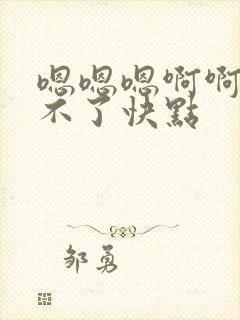 嗯嗯嗯啊啊
不了快點
邹勇